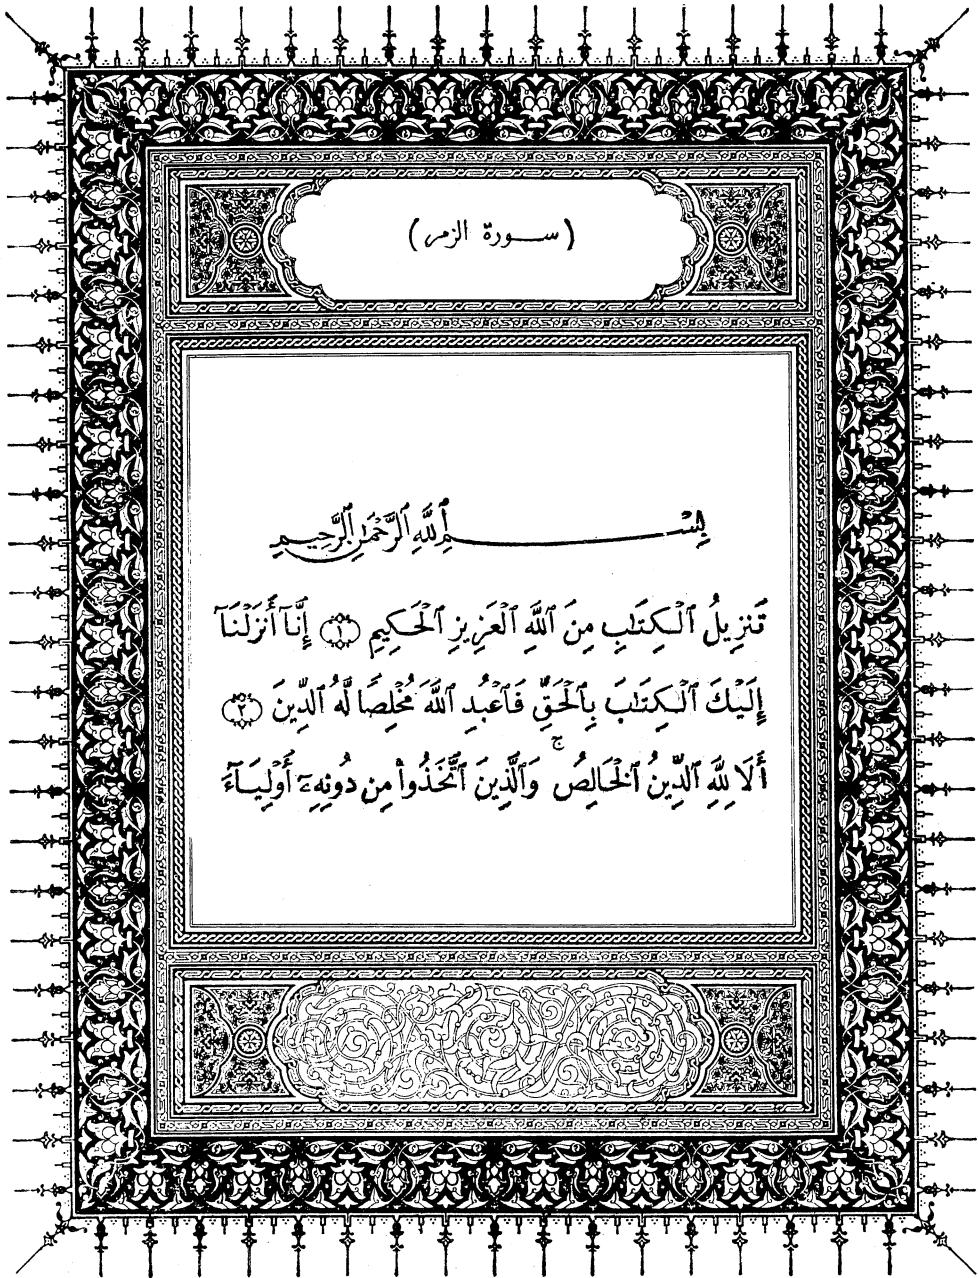 (ســورة الزمر)
بِسْمِ ٱللَّهِ ٱلرَّحْمَٰنِ ٱلرَّحِيمِ
تَنزِيلُ ٱلْكِتَٰبِ مِنَ ٱللَّهِ ٱلْعَزِيزِ ٱلْحَكِيمِ ١ إِنَّآ أَنزَلْنَآ
إِلَيْكَ ٱلْكِتَٰبَ بِٱلْحَقِّ فَٱعْبُدِ ٱللَّهَ مُخْلِصًا لَّهُ ٱلدِّينَ ٢
أَلَا لِلَّهِ ٱلدِّينُ ٱلْخَالِصُ ۚ وَٱلَّذِينَ ٱتَّخَذُوا۟ مِن دُونِهِۦٓ أَوْلِيَآءَ